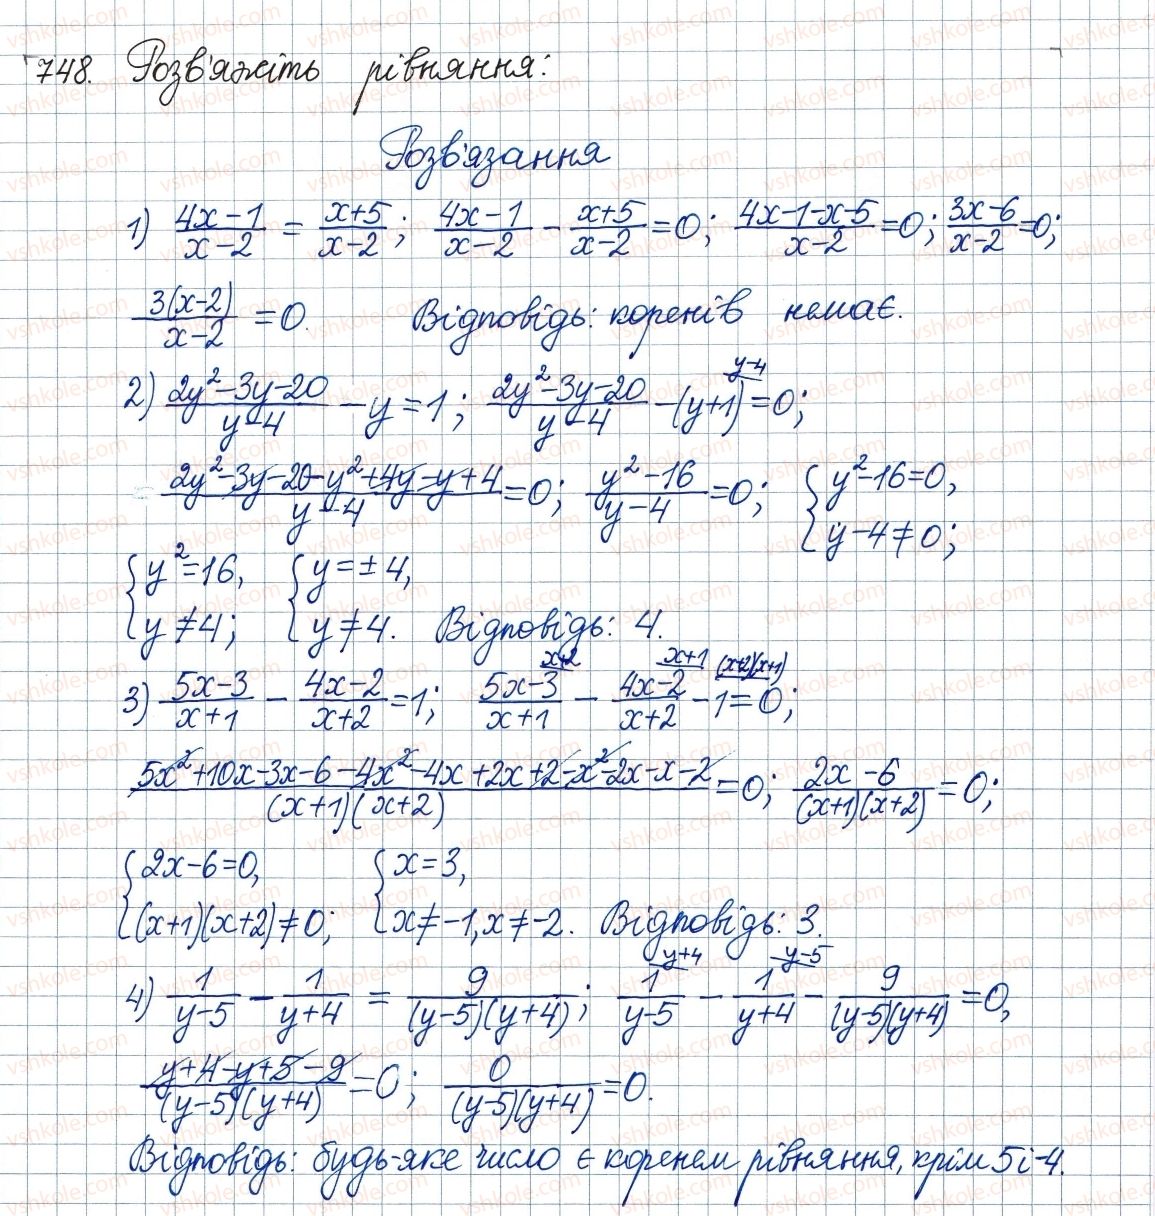 748. Розв'яжіть рівняння:
Розв'язання
1) (4x-1)/(x-2) = (x+5)/(x-2); (4x-1)/(x-2) - (x+5)/(x-2) = 0; (4x-1-x-5)/(x-2) = 0; (3x-6)/(x-2) = 0;
3(x-2)/(x-2) = 0. Відповідь: коренів немає.
2) (2y²-3y-20)/(y-4) - y = 1; (2y²-3y-20)/(y-4) - (y+1)^{y-4} = 0;
(2y²-3y-20-y²+4y-y+4)/(y-4) = 0; (y²-16)/(y-4) = 0; { y²-16=0, y-4≠0;
{ y²=16, y≠4; { y=±4, y≠4. Відповідь: 4.
3) (5x-3)/(x+1) - (4x-2)/(x+2) = 1; (5x-3)^{x+2}/(x+1) - (4x-2)^{x+1}/(x+2) - 1^{(x+2)(x+1)} = 0;
(5x²+10x-3x-6-4x²-4x+2x+2-x²-2x-x-2)/((x+1)(x+2)) = 0; (2x-6)/((x+1)(x+2)) = 0;
{ 2x-6=0, (x+1)(x+2)≠0; { x=3, x≠-1, x≠-2. Відповідь: 3.
4) 1/(y-5) - 1/(y+4) = 9/((y-5)(y+4)); 1^{y+4}/(y-5) - 1^{y-5}/(y+4) - 9/((y-5)(y+4)) = 0,
(y+4-y+5-9)/((y-5)(y+4)) = 0; 0/((y-5)(y+4)) = 0.
Відповідь: будь-яке число є коренем рівняння, крім 5 і -4.